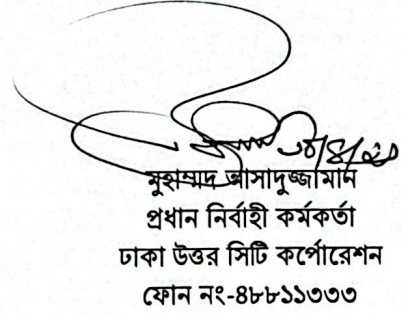 মুহাম্মাদ আসাদুজ্জামান
প্রধান নির্বাহী কর্মকর্তা
ঢাকা উত্তর সিটি কর্পোরেশন
ফোন নং-৪৮৮১১৩৩৩